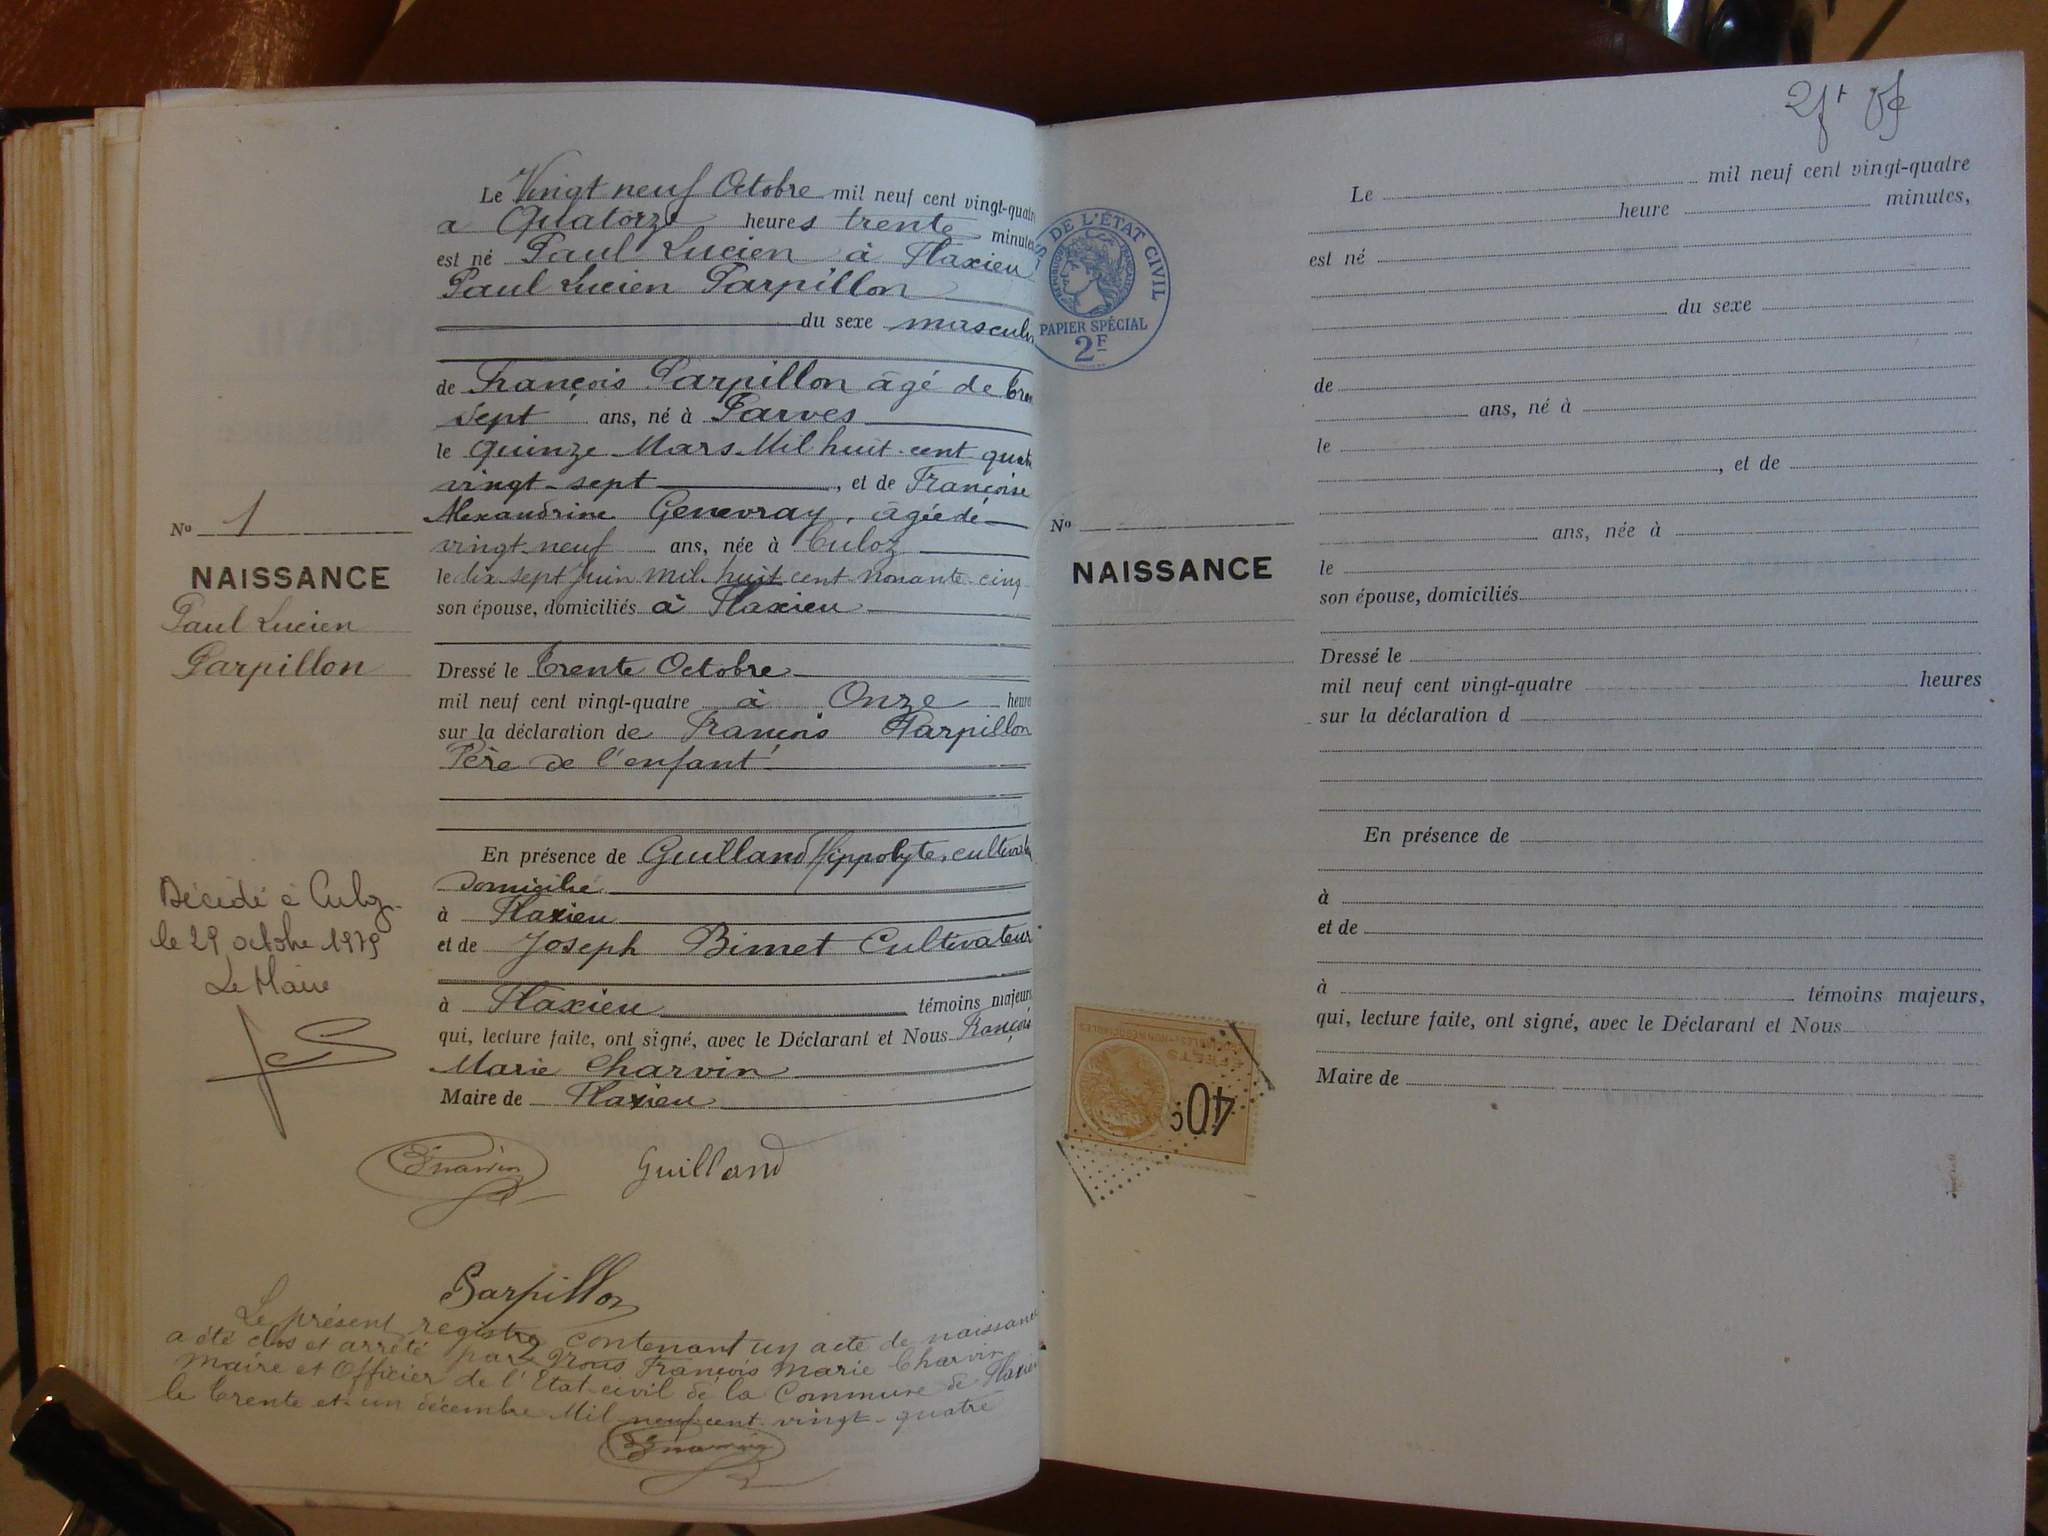 Le Vingt neuf Octobre mil neuf cent vingt-quatre
a Quatorze heures trente minutes
est né Paul Lucien à Flaxieu
Paul Lucien Parpillon
du sexe masculin
de François Parpillon âgé de tren
sept ans, né à Parves
le quinze Mars Mil huit cent quatre
vingt-sept, et de Françoise
Alexandrine Genevray, âgée de
vingt-neuf ans, née à Culoz
le dix sept Juin mil huit cent nonante cinq
son épouse, domiciliés à Flaxieu
Dressé le trente Octobre
mil neuf cent vingt-quatre à Onze heure
sur la déclaration de François Parpillon
Père de l'enfant
En présence de Guilland Hippolyte, cultivateur
domicilié
à Flaxieu
et de Joseph Bimet Cultivateur
à Flaxieu témoins majeurs
qui, lecture faite, ont signé, avec le Déclarant et Nous François
Marie Charvin
Maire de Flaxieu
Charvin Guilland
Parpillon
Le présent registre contenant un acte de naissance
a été clos et arrêté par Nous François Marie Charvin
Maire et Officier de l'Etat-civil de la Commune de Flaxieu
le trente et un décembre Mil neuf cent vingt-quatre
Charvin
No 1
NAISSANCE
Paul Lucien
Parpillon
Décédé à Culoz
le 29 octobre 1979
Le Maire
S DE L'ÉTAT CIVIL
RÉPUBLIQUE FRANÇAISE
PAPIER SPÉCIAL
2F
Le mil neuf cent vingt-quatre
heure minutes,
est né
du sexe
de
ans, né à
le
, et de
ans, née à
le
son épouse, domiciliés
Dressé le
mil neuf cent vingt-quatre heures
sur la déclaration d
En présence de
à
et de
à témoins majeurs,
qui, lecture faite, ont signé, avec le Déclarant et Nous
Maire de
No
NAISSANCE
40c